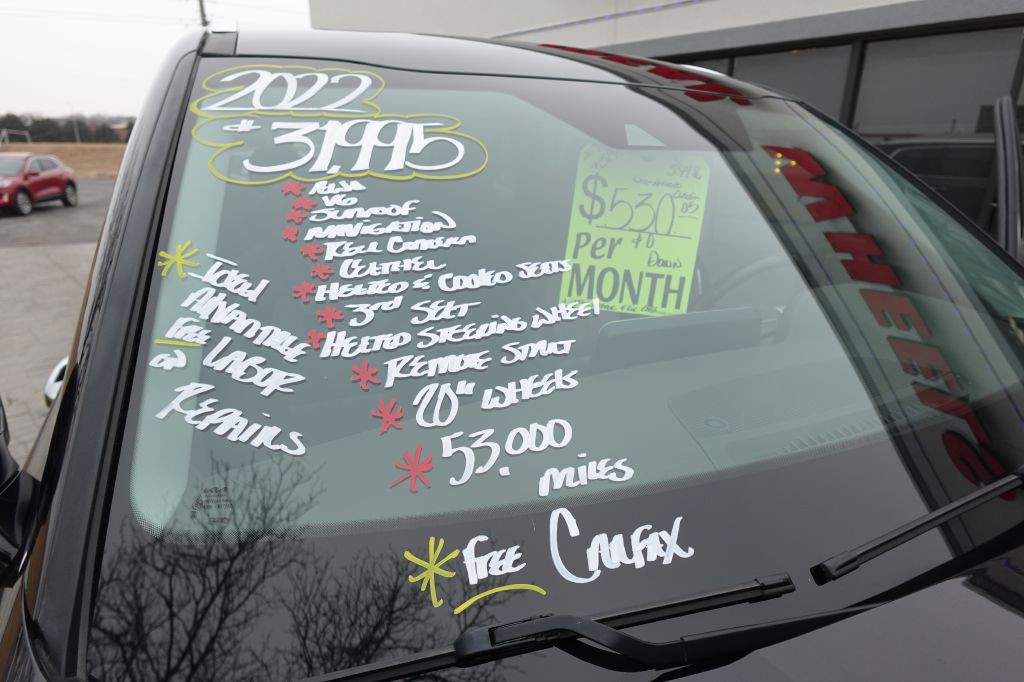 2022
$31,995
V6
SUNROOF
NAVIGATION
LEATHER
HEATED & COOLED SEATS
3rd SEAT
HEATED STEERING WHEEL
REMOTE START
20" WHEELS
53,000
MILES
TOTAL
ADVANTAGE
FREE LABOR
ON
REPAIRS
FREE CARFAX
$530
Per
MONTH
$0
DOWN